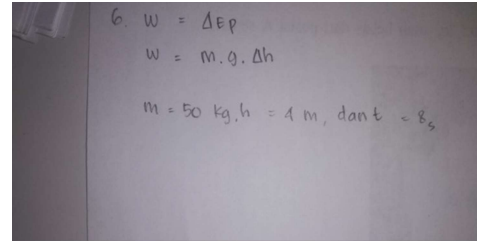 6. W = ΔEp
W = m.g.Δh
m = 50 kg, h = 4 m, dan t = 8s